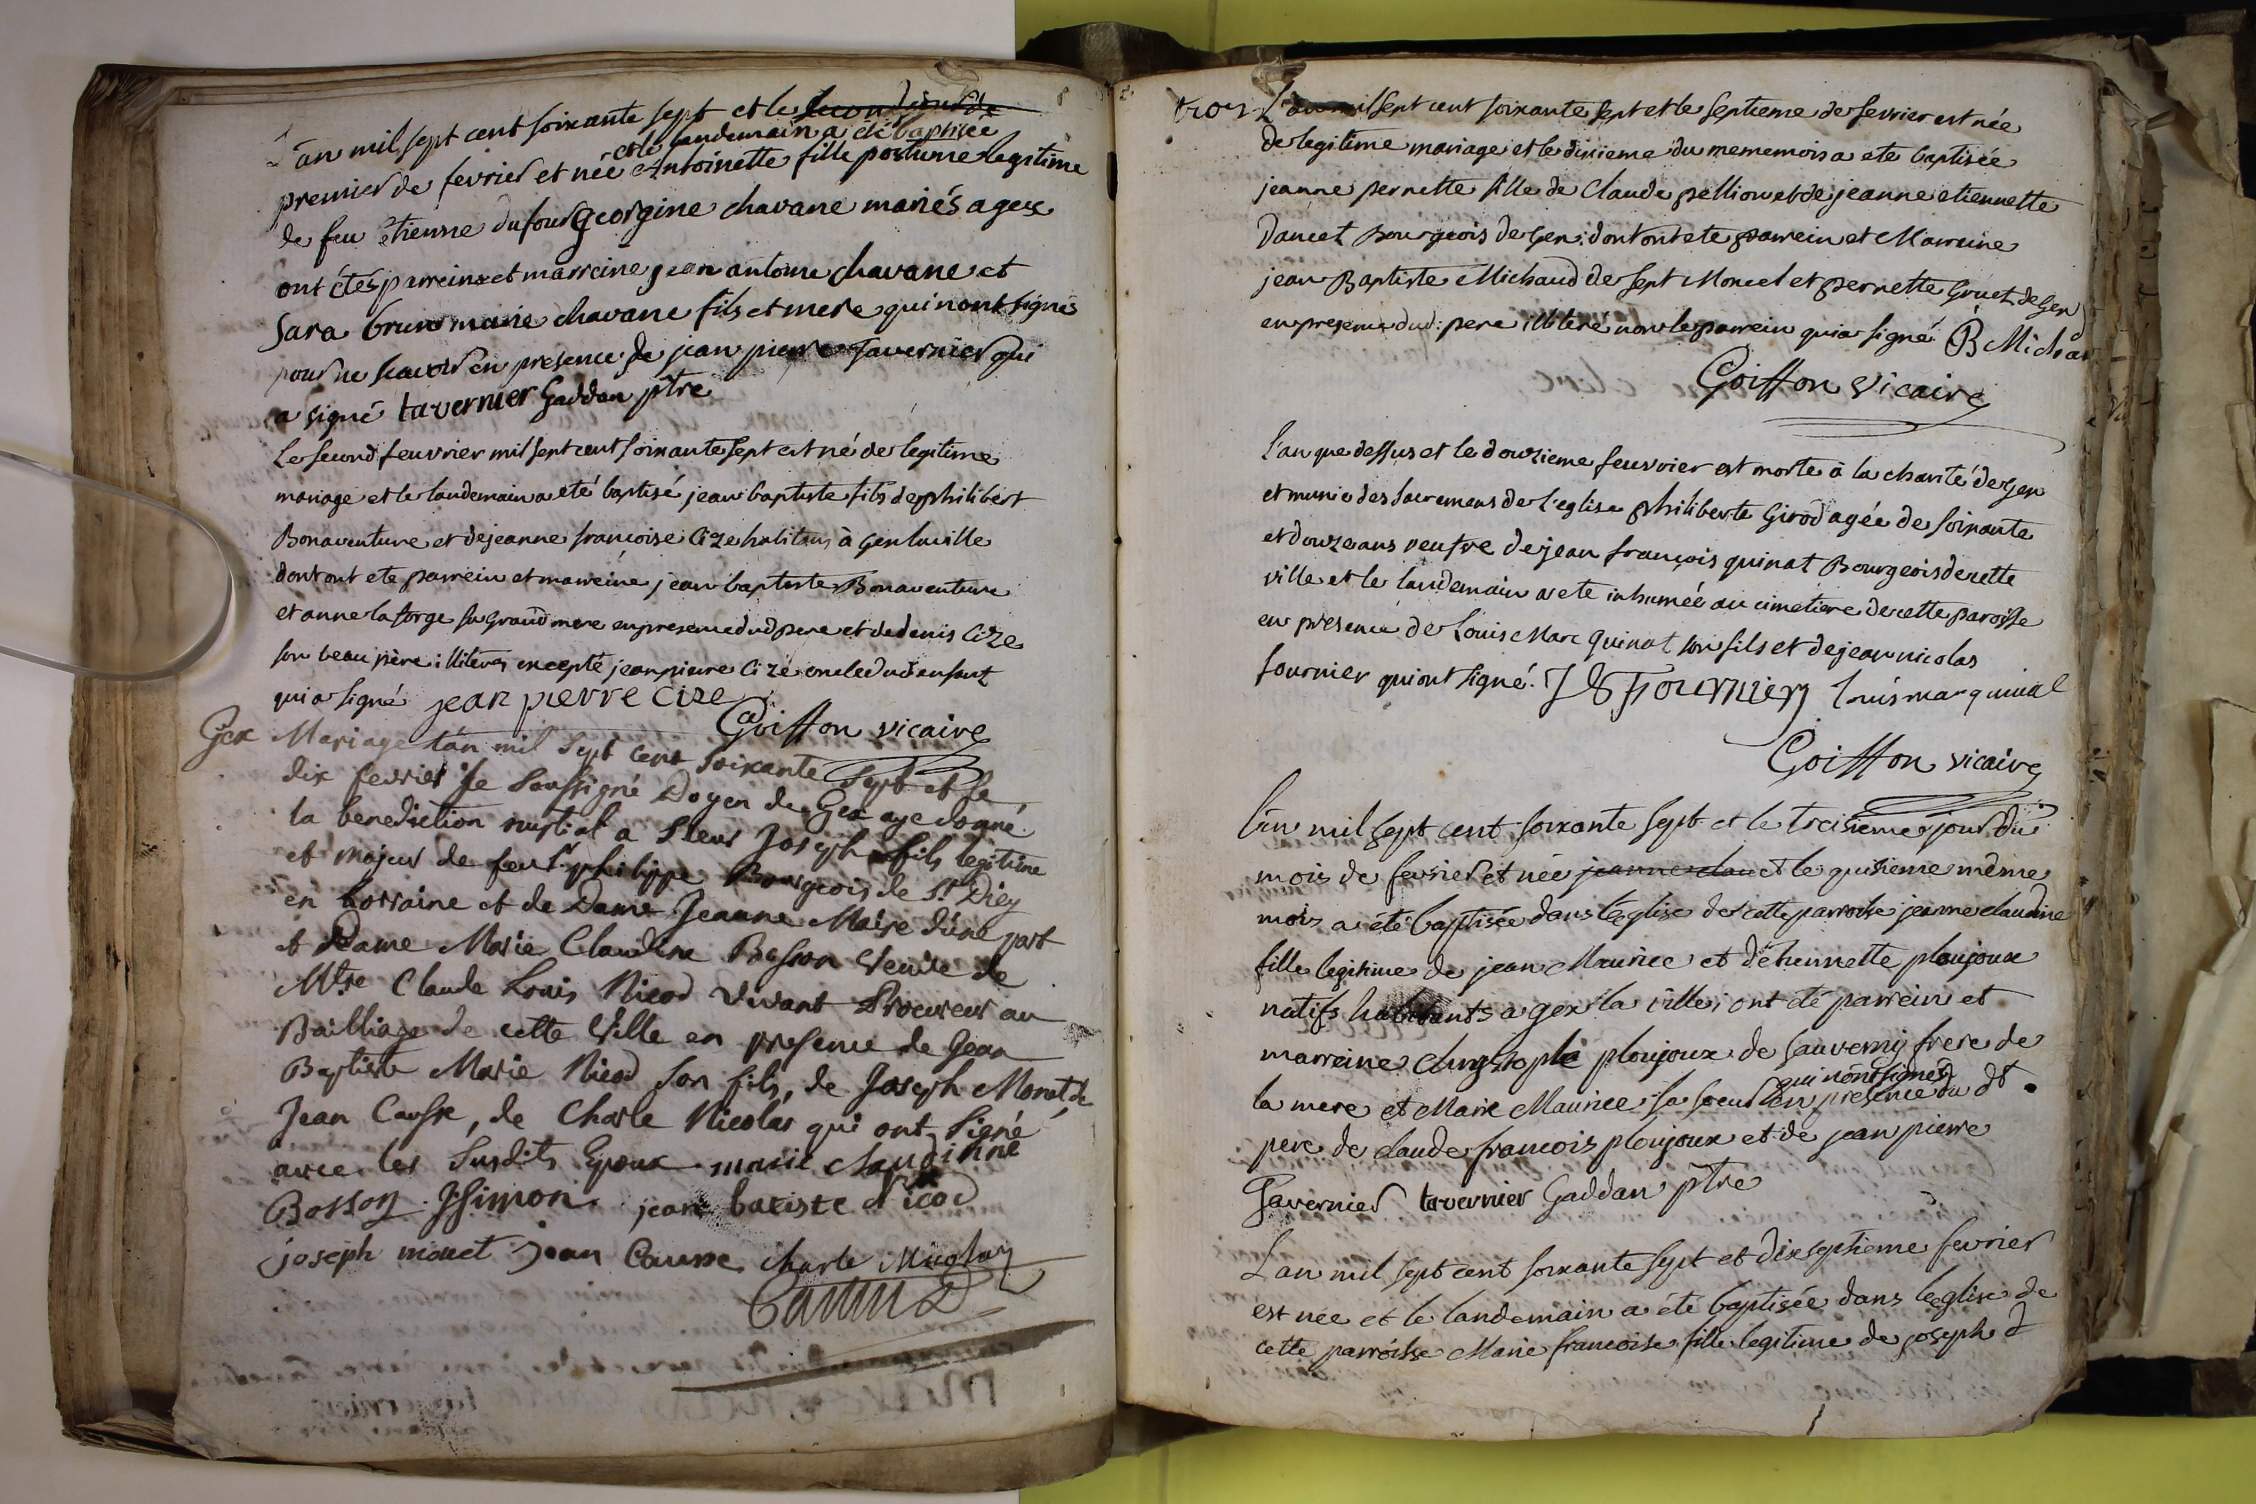 L'an mil sept cent soixante sept et le second jour de
et le landemain a été baptisée
premier de fevrier et née Antoinette fille postume legitime
de feu étienne dufour Georgine chavane mariés a gex
ont étés parreins et marreine jean antoine chavane et
Sara brun marie chavane fils et mere qui n'ont signés
pour ne scavoir en presence de jean pierre Tavernier qui
a signé tavernier Gaddan ptre
Le second feuvrier mil sept cent soixante sept est né de legitime
mariage et le landemain a eté baptisé jean baptiste fils de philibert
Bonaventure et de jeanne françoise Cize habitans à Gex la ville
dont ont ete parrein et marreine jean baptiste Bonaventure
et anne laforge sa grand mere en presence dud pere et de denis Cize
son beau père illiteres excepté jean pierre Cize oncle dud enfant
qui a signé jean pierre cize
Goiffon vicaire
Gex Mariage l'an mil sept cent soixante sept et le
dix fevrier Je soussigné Doyen de Gex aye donné
la benediction nuptial a Sieur Joseph fils legitime
et majeur de feu Sr philippe Bourgeois de St Diey
en Lorraine et de Dame Jeanne Maire d'une part
et Dame Marie Claudine Bosson Veuve de
Mtre Claude Louis Nicod vivant Procureur au
Bailliage de cette Ville en presence de Jean
Baptiste Marie Nicod son fils, de Joseph Monet, de
Jean Causse, de Charle Nicolas qui ont signé
avec les susdits Epoux marie claudinne
Bosson J Simon jean batiste Nicod
joseph monet jean Causse charle Nicolas
trois L'an mil sept cent soixante sept et le septieme de fevrier est née
de legitime mariage et le dixieme du meme mois a ete baptisée
jeanne pernette fille de Claude pellion et de jeanne etiennette
Dancet Bourgeois de Gex; dont ont ete parrein et Marreine
jean Baptiste Michaud de Sept Moncel et pernette Gruet de Gex
en presence dud: pere illitere non le parrein qui a signé JB Michau
Goiffon vicaire
l'an que dessus et le douzieme feuvrier est morte à la charité de Gex
et munie des sacremens de l'eglise philiberte Girod agée de soixante
et douze ans veufve de jean françois quinat Bourgeois de cette
ville et le landemain a ete inhumée au cimetiere de cette paroisse
en presence de Louis Marc quinat son fils et de jean nicolas
fournier qui ont signé. JN Fournier louis marc quinat
Goiffon vicaire
L'an mil sept cent soixante sept et le treisieme jour du
mois de fevrier et née jeanne clau et le quisieme même
mois a été baptisée dans l'eglise de cette parroisse jeanne claudine
fille legitime de jean Maurice et d'etiennette ploujoux
natifs habitants a gex la ville; ont été parrein et
marreine christophle ploujoux de Sauverny frere de
la mere et Marie Maurice sa soeur qui n'ont signés en presence du dt
pere de claude francois ploujoux et de jean pierre
Tavernier tavernier Gaddan ptre
L'an mil sept cent soixante sept et dix septieme fevrier
est née et le landemain a été baptisée dans l'eglise de
cette parroisse Marie francoise fille legitime de joseph &